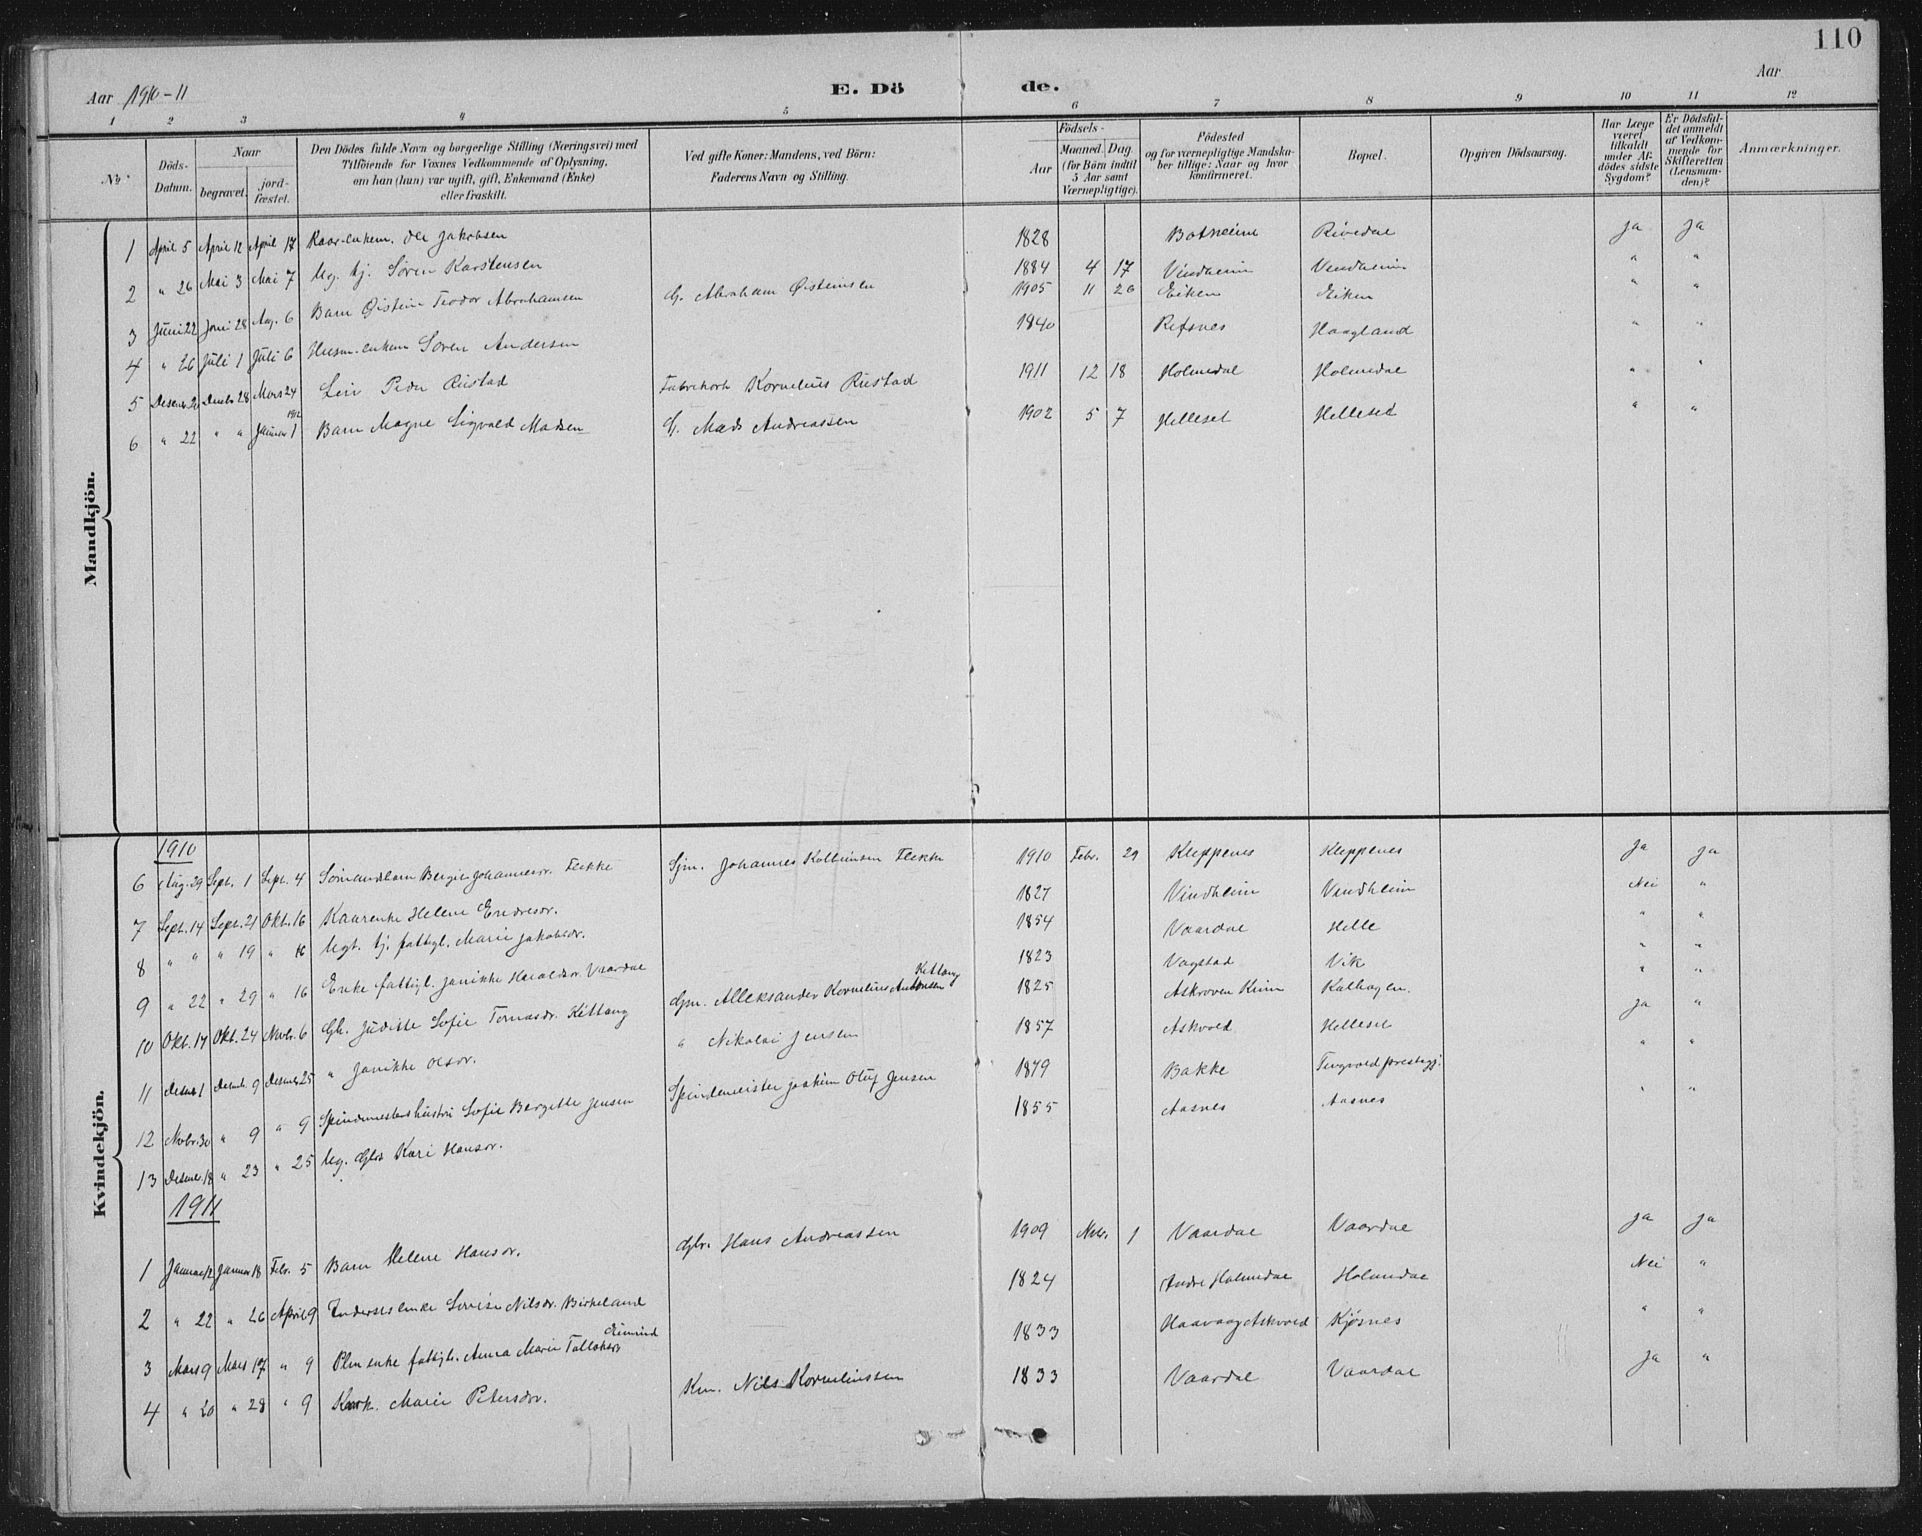 110
Aar 1910-11
E. Dö de.
Aar
1 2 3 4 5 6 7 8 9 10 11 12
No. Döds-Datum. Naar begravet. jord-fæstet. Den Dödes fulde Navn og borgerlige Stilling (Næringsvei) med Tilföiende for Voxnes Vedkommende af Oplysning, om han (hun) var ugift, gift, Enkemand (Enke) eller fraskilt. Ved gifte Koner: Mandens, ved Börn: Faderens Navn og Stilling. Födsels- Aar Maaned. Dag. (for Börn indtil 5 Aar samt Værnepligtige). Födested og for værnepligtige Mandska-ber tillige: Naar og hvor konfirmeret. Bopæl. Opgiven Dödsaarsag. Har Læge været tilkaldt under Af-dödes sidste Sygdom? Er Dödsfal-det anmeldt af Vedkom-mende for Skifteretten (Lensman-den)? Anmærkninger.
Mandkjön.
1 April 5 April 12 April 17 Kaarenkem. Ole Jakobsen 1828 Botneim Rivedal Ja Ja
2 " 26 Mai 3 Mai 7 Ug. tj. Søren Karstensen 1884 4 17 Vindheim Vindheim " "
3 Juni 22 Juni 28 Aug. 6 Barn Øistein Teodor Abrahamsen G. Abraham Øisteinsen 1905 11 26 Eiken Eiken " "
4 " 26 Juli 1 Juli 6 Husm.enkem Søren Andersen 1840 Refsnes Haagland " "
5 Desember Desbr 28 Mars 24 1912 Leiv Peder Rustad Fabrikarb Kornelius Rustad 1911 12 18 Holmedal Holmedal " "
6 " 22 " " Januar 1 Barn Magne Sigvald Madsen G. Mads Andreassen 1902 5 7 Helleset Helleset " "
Kvindekjön.
1910
6 Aug. 29 Sept. 1 Sept. 4 Sømandsbarn Bergit Johannesdr. Flekke Sjm. Johannes Kolbeinsen Flekke 1910 Febr. 29 Kleppenes Kleppenes Ja Ja
7 Sept. 14 Sept. 21 Okt. 16 Kaarenke Helene Endresdr. 1827 Vindheim Vindheim Nei "
8 " " " 19 " 16 Ugt. tj. fattigl. Marie Jakobsdr. 1854 Vaardal Helle " "
9 " 22 " 29 " 16 Enke fattigl. Janikke Haraldsdr Vaardal 1823 Vagstad Vik " "
10 Okt. 17 Okt. 24 Novbr. 6 Gk. Juditte Sofie Tomasdr. Kittang Gm. Alleksander Kornelius Antonsen Kittang 1825 Askroven Kinn Kalhagen. " "
11 Desbr 1 Desmb. 9 Desmbr 25 " Janikke Olsdr. " Nikolai Jensen 1857 Askvold Helleset Ja "
12 Novbr. 30 " 9 " 9 Spindemestershustru Sofie Bergitte Jensen Spindemeister Joakim Oluf Jensen 1879 Bakke Tingvold prestegj. " "
13 Desmbr 18 " 23 " 25 Ug. Gbr Kari Hansdr. 1855 Aasnes Aasnes " "
1911
1 Januar 12 Januar 18 Febr. 5 Barn Helene Hansdr. Gbr. Hans Andreassen 1909 Novbr. 1 Vaardal Vaardal Ja Ja
2 " 22 " 26 April 9 Indersteenke Lovise Nilsdr. Birkeland 1824 Indre Holmedal Holmedal Nei "
3 Mars 9 Mars 17 " 9 Plm enke fattigl. Anna Marie Tollaksdr 1833 Haavaag Askvold Kjøsnes " "
4 " 20 " 28 " 9 Kaark. Marie Petersdr. Km. Nils Korneliussen 1833 Vaardal Vaardal Ja "